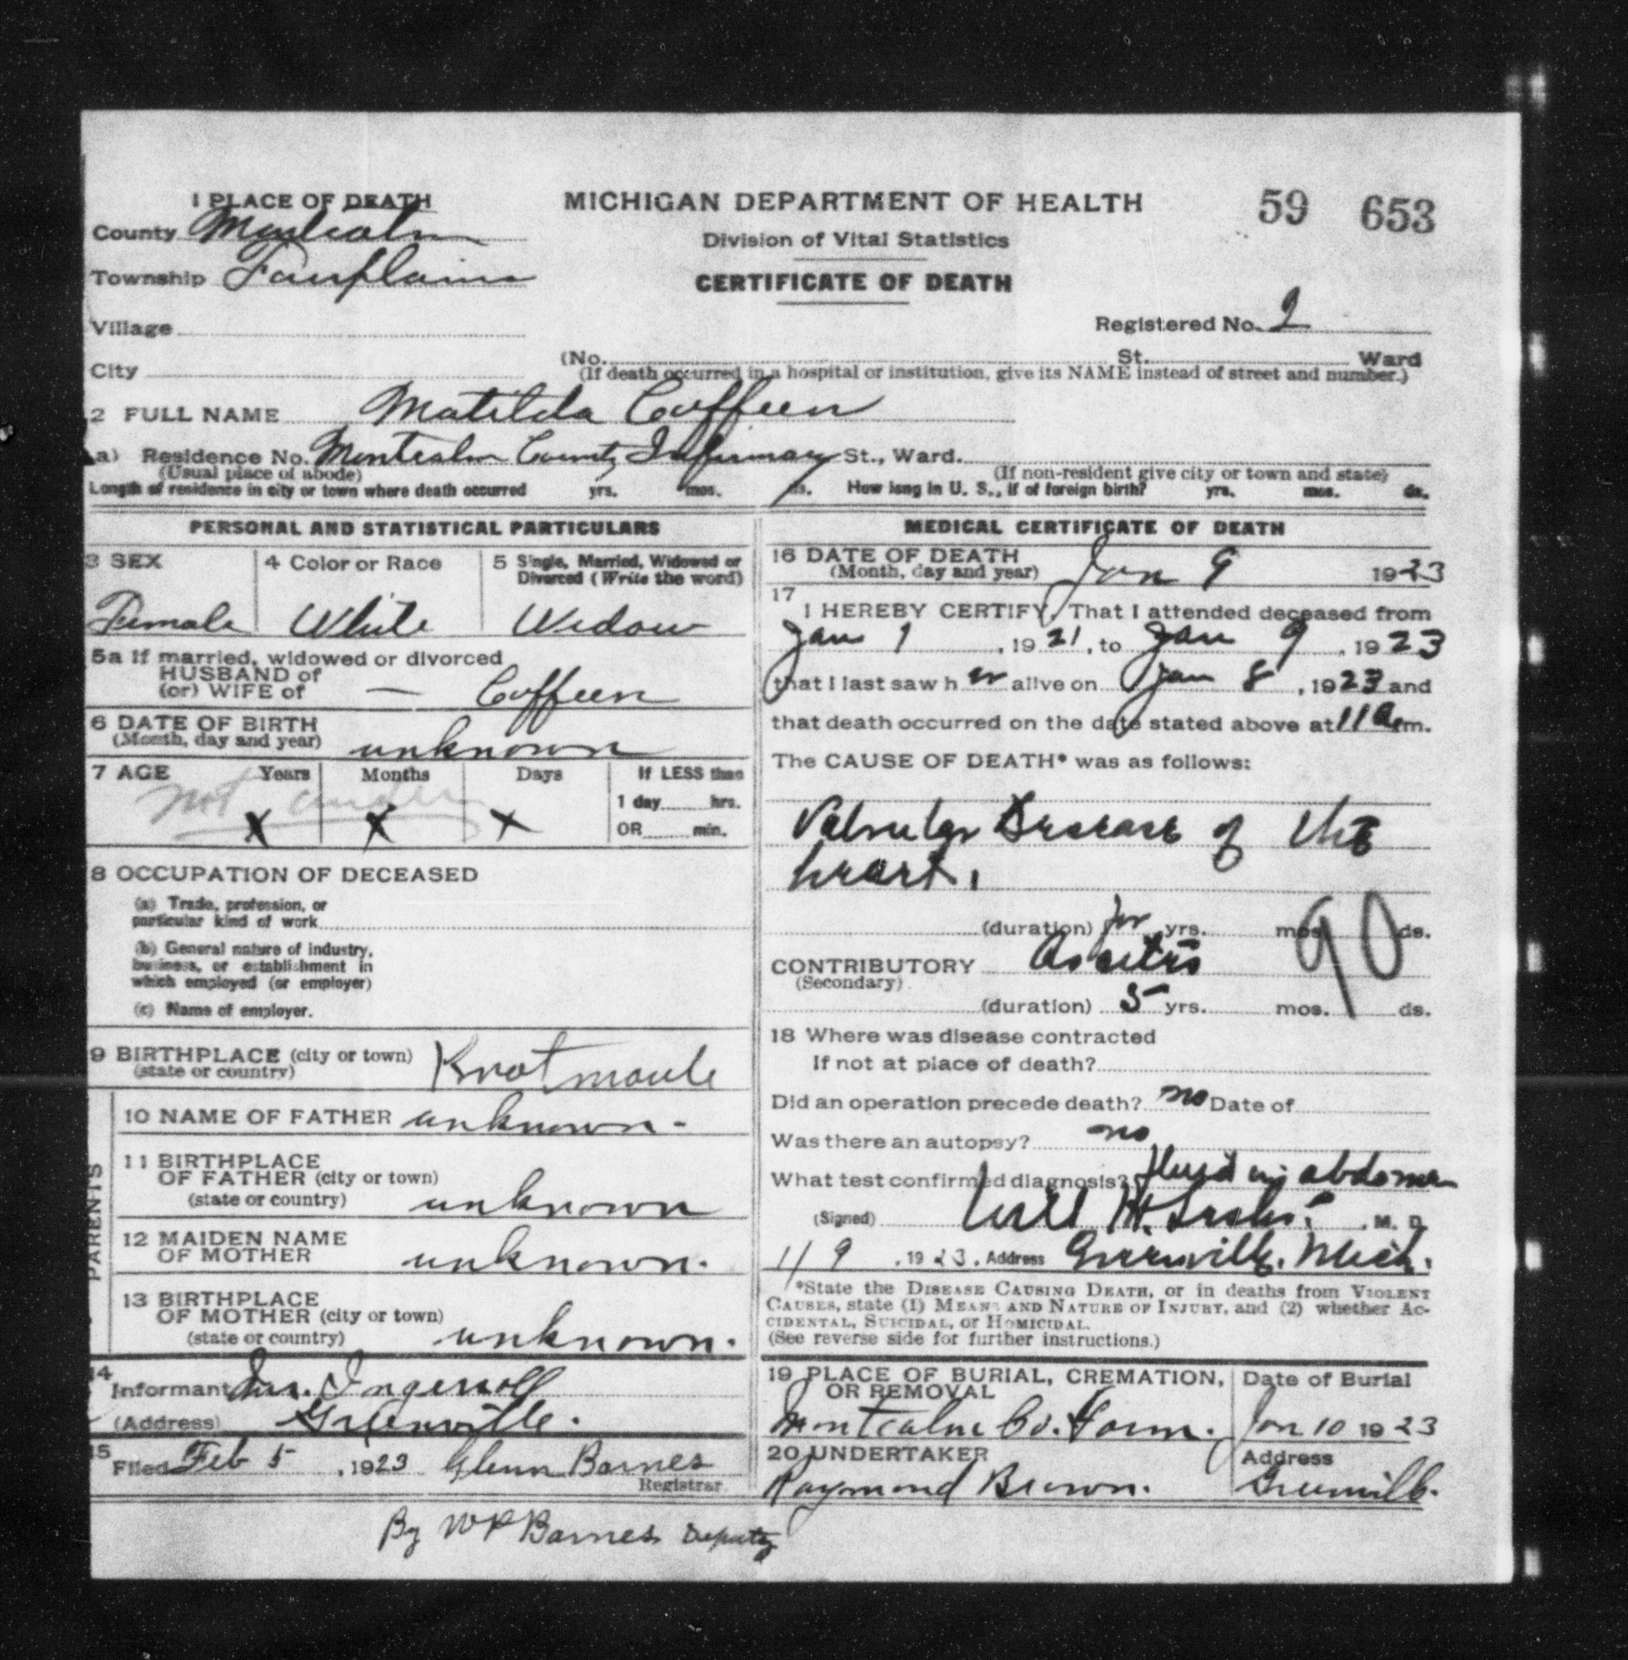 1 PLACE OF DEATH
MICHIGAN DEPARTMENT OF HEALTH
59 653
County Montcalm
Division of Vital Statistics
Township Fairplains
CERTIFICATE OF DEATH
Village
Registered No. 2
City
(No. St. Ward
(If death occurred in a hospital or institution, give its NAME instead of street and number.)
2 FULL NAME Matilda Cuffeen
(a) Residence No. Montcalm County Infirmary St., Ward.
(Usual place of abode)
(If non-resident give city or town and state)
Length of residence in city or town where death occurred yrs. mos. ds. How long in U. S., if of foreign birth? yrs. mos. ds.
PERSONAL AND STATISTICAL PARTICULARS
3 SEX
4 Color or Race
5 Single, Married, Widowed or
Divorced (Write the word)
Female White Widow
5a If married, widowed or divorced
HUSBAND of
(or) WIFE of — Cuffeen
6 DATE OF BIRTH
(Month, day and year) unknown
7 AGE Years Months Days
If LESS than
1 day hrs.
OR min.
not
X X X
8 OCCUPATION OF DECEASED
(a) Trade, profession, or
particular kind of work
(b) General nature of industry,
business, or establishment in
which employed (or employer)
(c) Name of employer.
9 BIRTHPLACE (city or town)
(state or country)
PARENTS
10 NAME OF FATHER unknown-
11 BIRTHPLACE
OF FATHER (city or town)
(state or country) unknown
12 MAIDEN NAME
OF MOTHER unknown.
13 BIRTHPLACE
OF MOTHER (city or town)
(state or country) unknown.
14
Informant Ingersoll
(Address) Greenville.
15
Filed Feb 5, 1923 Glenn Barnes
Registrar
By W P Barnes Deputy
MEDICAL CERTIFICATE OF DEATH
16 DATE OF DEATH
(Month, day and year) Jan 9 1923
17
I HEREBY CERTIFY, That I attended deceased from
Jan 1, 1921, to Jan 9, 1923
that I last saw h er alive on Jan 8, 1923 and
that death occurred on the date stated above at 11 a.m.
The CAUSE OF DEATH* was as follows:
Valvular Disease of the
heart.
(duration) yrs. mos. ds.
90
CONTRIBUTORY Ascites
(Secondary)
(duration) 5 yrs. mos. ds.
18 Where was disease contracted
If not at place of death?
Did an operation precede death? no Date of
Was there an autopsy? no
What test confirmed diagnosis? fluid in abdomen
(Signed) Will H. , M. D.
1/9, 1923. Address Greenville, Mich.
*State the DISEASE CAUSING DEATH, or in deaths from VIOLENT
CAUSES, state (1) MEANS AND NATURE OF INJURY, and (2) whether AC-
CIDENTAL, SUICIDAL, or HOMICIDAL.
(See reverse side for further instructions.)
19 PLACE OF BURIAL, CREMATION,
OR REMOVAL
Date of Burial
Montcalm Co. Farm. Jan 10 1923
20 UNDERTAKER
Address
Raymond Brown. Greenville.